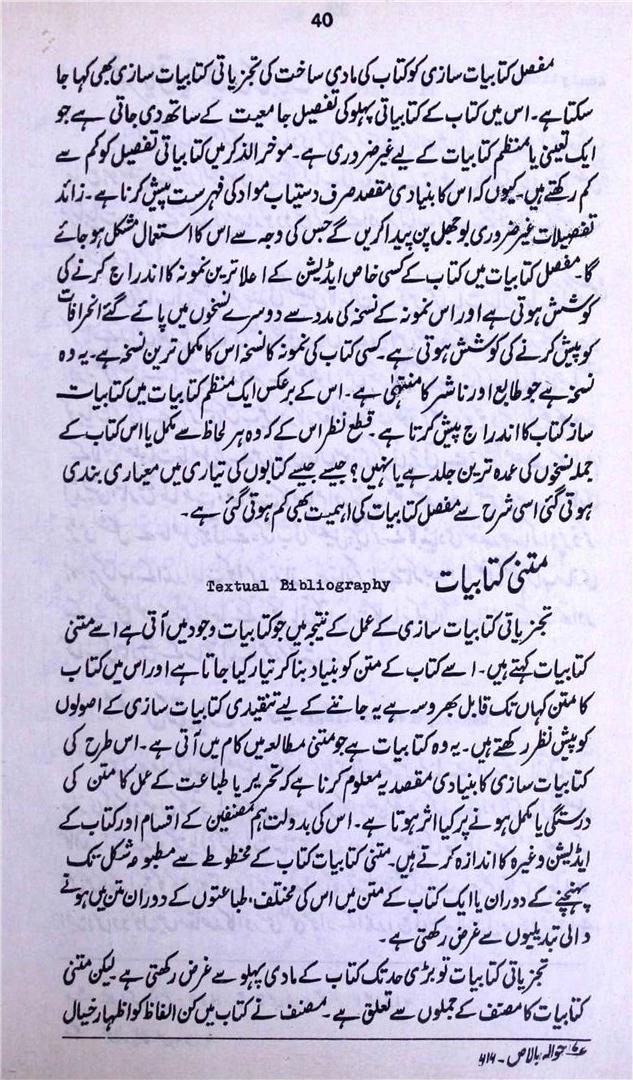 40
مفصل کتابیات سازی کو کتاب کی مادی ساخت کی تجزیاتی کتابیات سازی بھی کہا جا
سکتا ہے۔ اس میں کتاب کے کتابیاتی پہلو کی تفصیل جامعیت کے ساتھ دی جاتی ہے جو
ایک تعینی یا منظم کتابیات کے لیے غیر ضروری ہے۔ موخر الذکر میں کتابیاتی تفصیل کو کم سے
کم رکھتے ہیں۔ کیوں کہ اس کا بنیادی مقصد صرف دستیاب مواد کی فہرست پیش کرنا ہے۔ زائد
تفصیلات غیر ضروری بوجھل پن پیدا کریں گے جس کی وجہ سے اس کا استعمال مشکل ہو جائے
گا۔ مفصل کتابیات میں کتاب کے کسی خاص ایڈیشن کے اعلا ترین نمونہ کا اندراج کرنے کی
کوشش ہوتی ہے اور اس نمونہ کے نسخہ کی مدد سے دوسرے نسخوں میں پائے گئے انحرافات
کو پیش کرنے کی کوشش ہوتی ہے۔ کسی کتاب کی نمونہ کا نسخہ اس کا مکمل ترین نسخہ ہے۔ یہ وہ
نسخہ ہے جو طابع اور ناشر کا منتہیٰ ہے۔ اس کے برعکس ایک منظم کتابیات میں کتابیات
ساز کتاب کا اندراج پیش کرتا ہے۔ قطع نظر اس کے کہ وہ ہر لحاظ سے مکمل یا اس کتاب کے
جملہ نسخوں کی عمدہ ترین جلد ہے یا نہیں؟ جیسے جیسے کتابوں کی تیاری میں معیاری بندی
ہوتی گئی اسی شرح سے مفصل کتابیات کی اہمیت بھی کم ہوتی گئی ہے۔
متنی کتابیات Textual Bibliography
تجزیاتی کتابیات سازی کے عمل کے نتیجہ میں جو کتابیات وجود میں آتی ہے اسے متنی
کتابیات کہتے ہیں۔ اسے کتاب کے متن کو بنیاد بنا کر تیار کیا جاتا ہے اور اس میں کتاب
کا متن کہاں تک قابل بھروسہ ہے یہ جاننے کے لیے تنقیدی کتابیات سازی کے اصولوں
کو پیش نظر رکھتے ہیں۔ یہ وہ کتابیات ہے جو متنی مطالعہ میں کام میں آتی ہے۔ اس طرح کی
کتابیات سازی کا بنیادی مقصد یہ معلوم کرنا ہے کہ تحریر یا طباعت کے عمل کا متن کی
درستگی یا مکمل ہونے پر کیا اثر ہوتا ہے۔ اس کی بدولت ہم مصنفین کے اقسام اور کتاب کے
ایڈیشن وغیرہ کا اندازہ کرتے ہیں۔ متنی کتابیات کتاب کے مخطوطے سے مطبوعہ شکل تک
پہنچنے کے دوران یا ایک کتاب کے متن میں اس کی مختلف طباعتوں کے دوران متن میں ہونے
والی تبدیلیوں سے غرض رکھتی ہے۔
تجزیاتی کتابیات تو بڑی حد تک کتاب کے مادی پہلو سے غرض رکھتی ہے لیکن متنی
کتابیات کا مصنف کے جملوں سے تعلق ہے۔ مصنف نے کتاب میں کن الفاظ کو اظہار خیال
حوالہ بالا ص۔